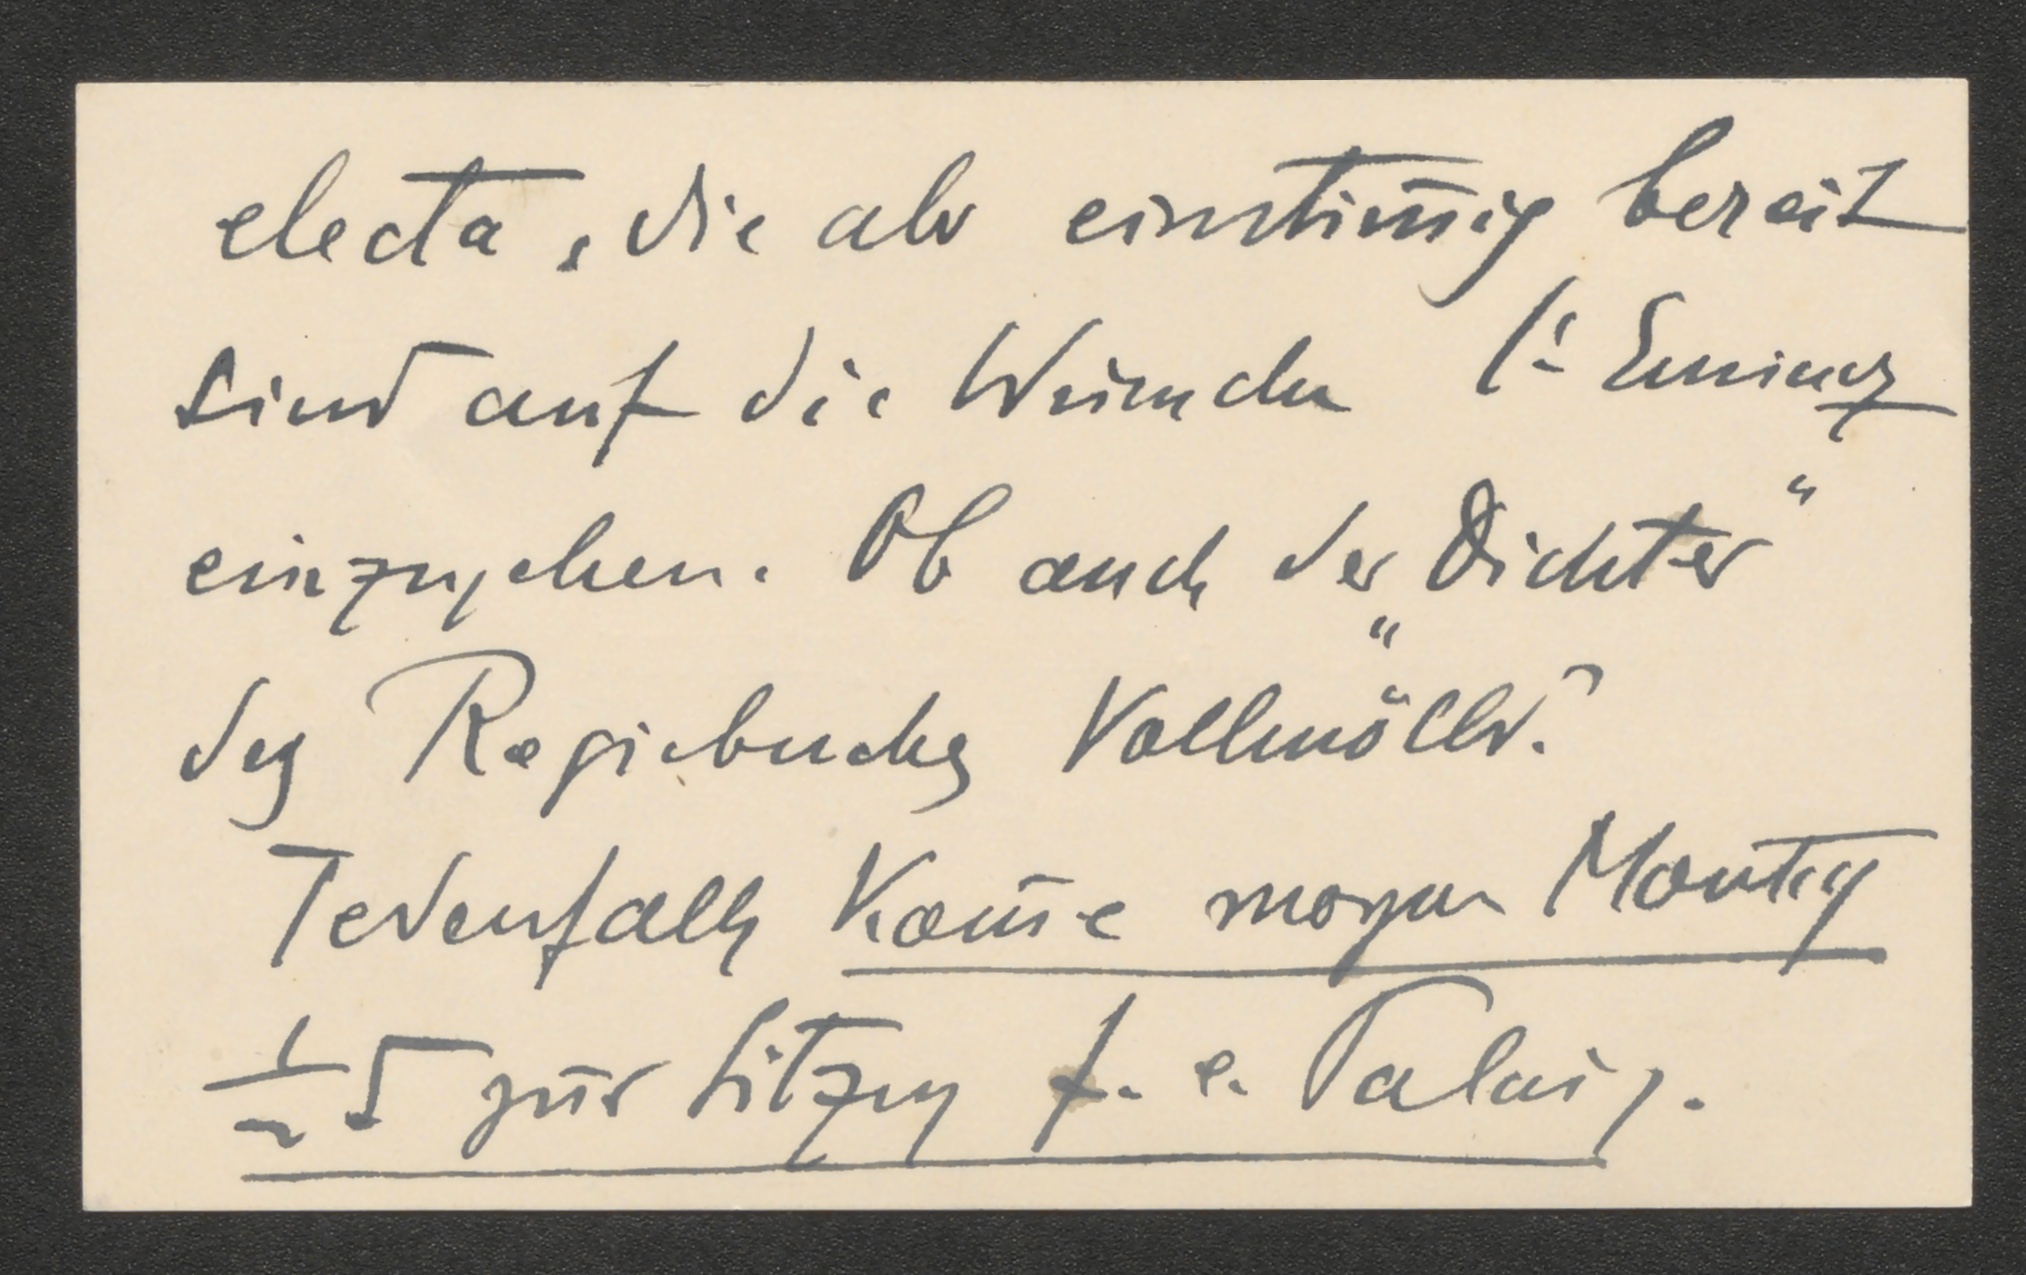 electa, die also einstim̅ig bereit
sind auf die Wünsche Sr Eminenz
einzugehen. Ob auch der "Dichter"
des Regiebuches Vollmöller?
Jedenfalls kom̅e morgen Montag
1/2 5 zur Sitzung f. e. Palais.